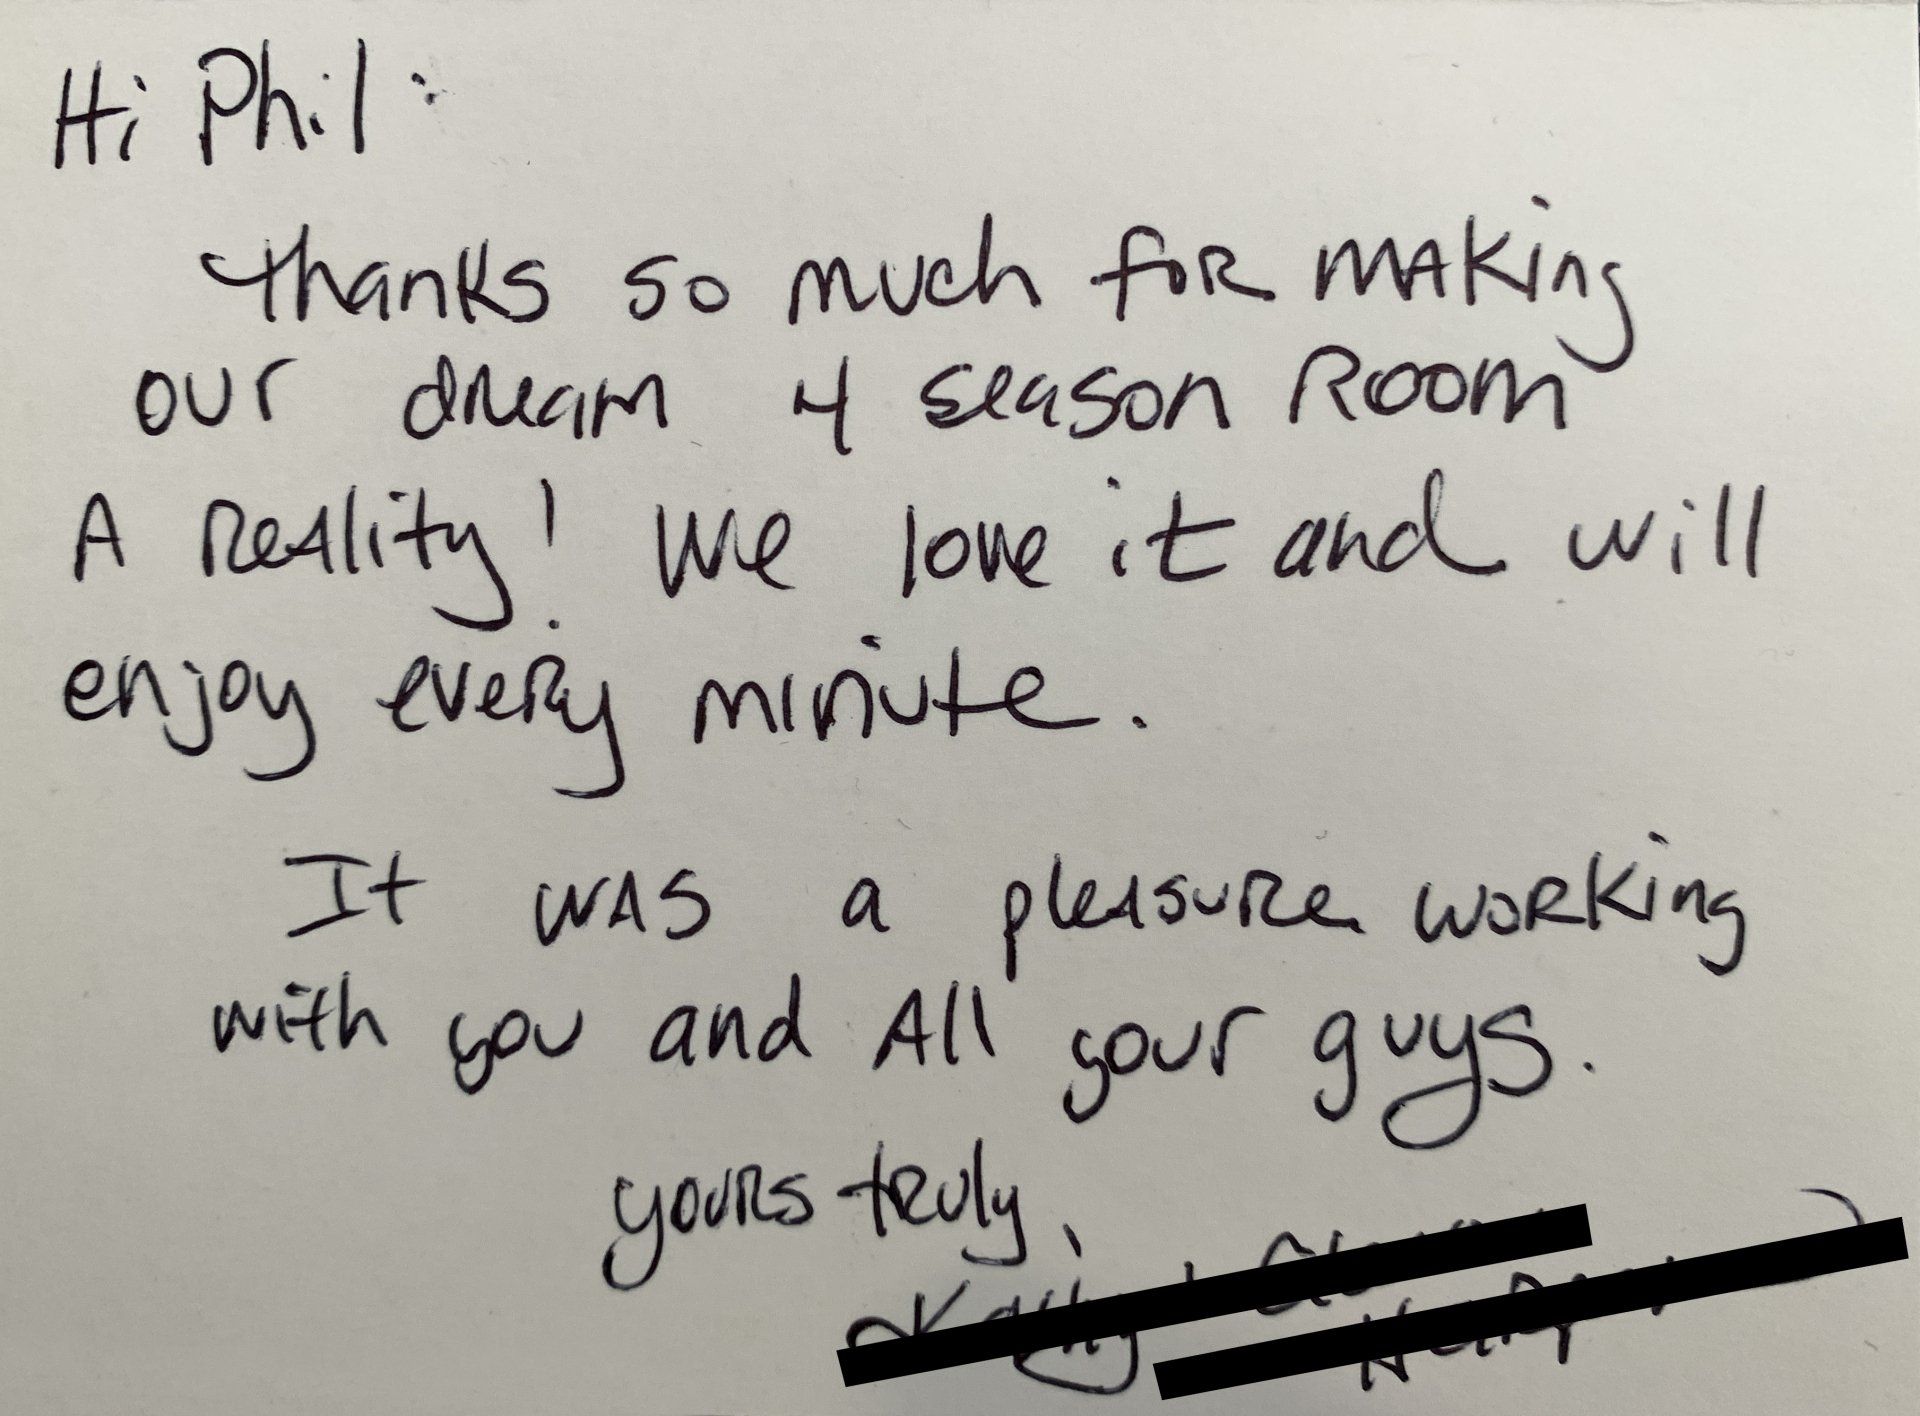 Hi Phil:
thanks so much for making
our dream 4 season Room
A Reality! We love it and will
enjoy every minute.
It was a pleasure working
with you and All your guys.
yours truly,